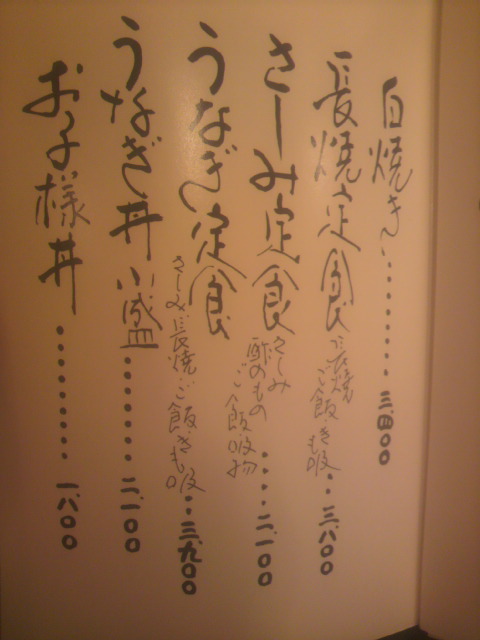 白焼き………三、四〇〇
長焼定食 長焼 ご飯 きも吸 ‥三、八〇〇
さしみ定食 さしみ 酢のもの ご飯 吸物 ‥‥‥二、一〇〇
うなぎ定食 さしみ 長焼 ご飯 きも吸 ‥三、九〇〇
うなぎ丼 小盛………二、一〇〇
お子様丼…………一、八〇〇